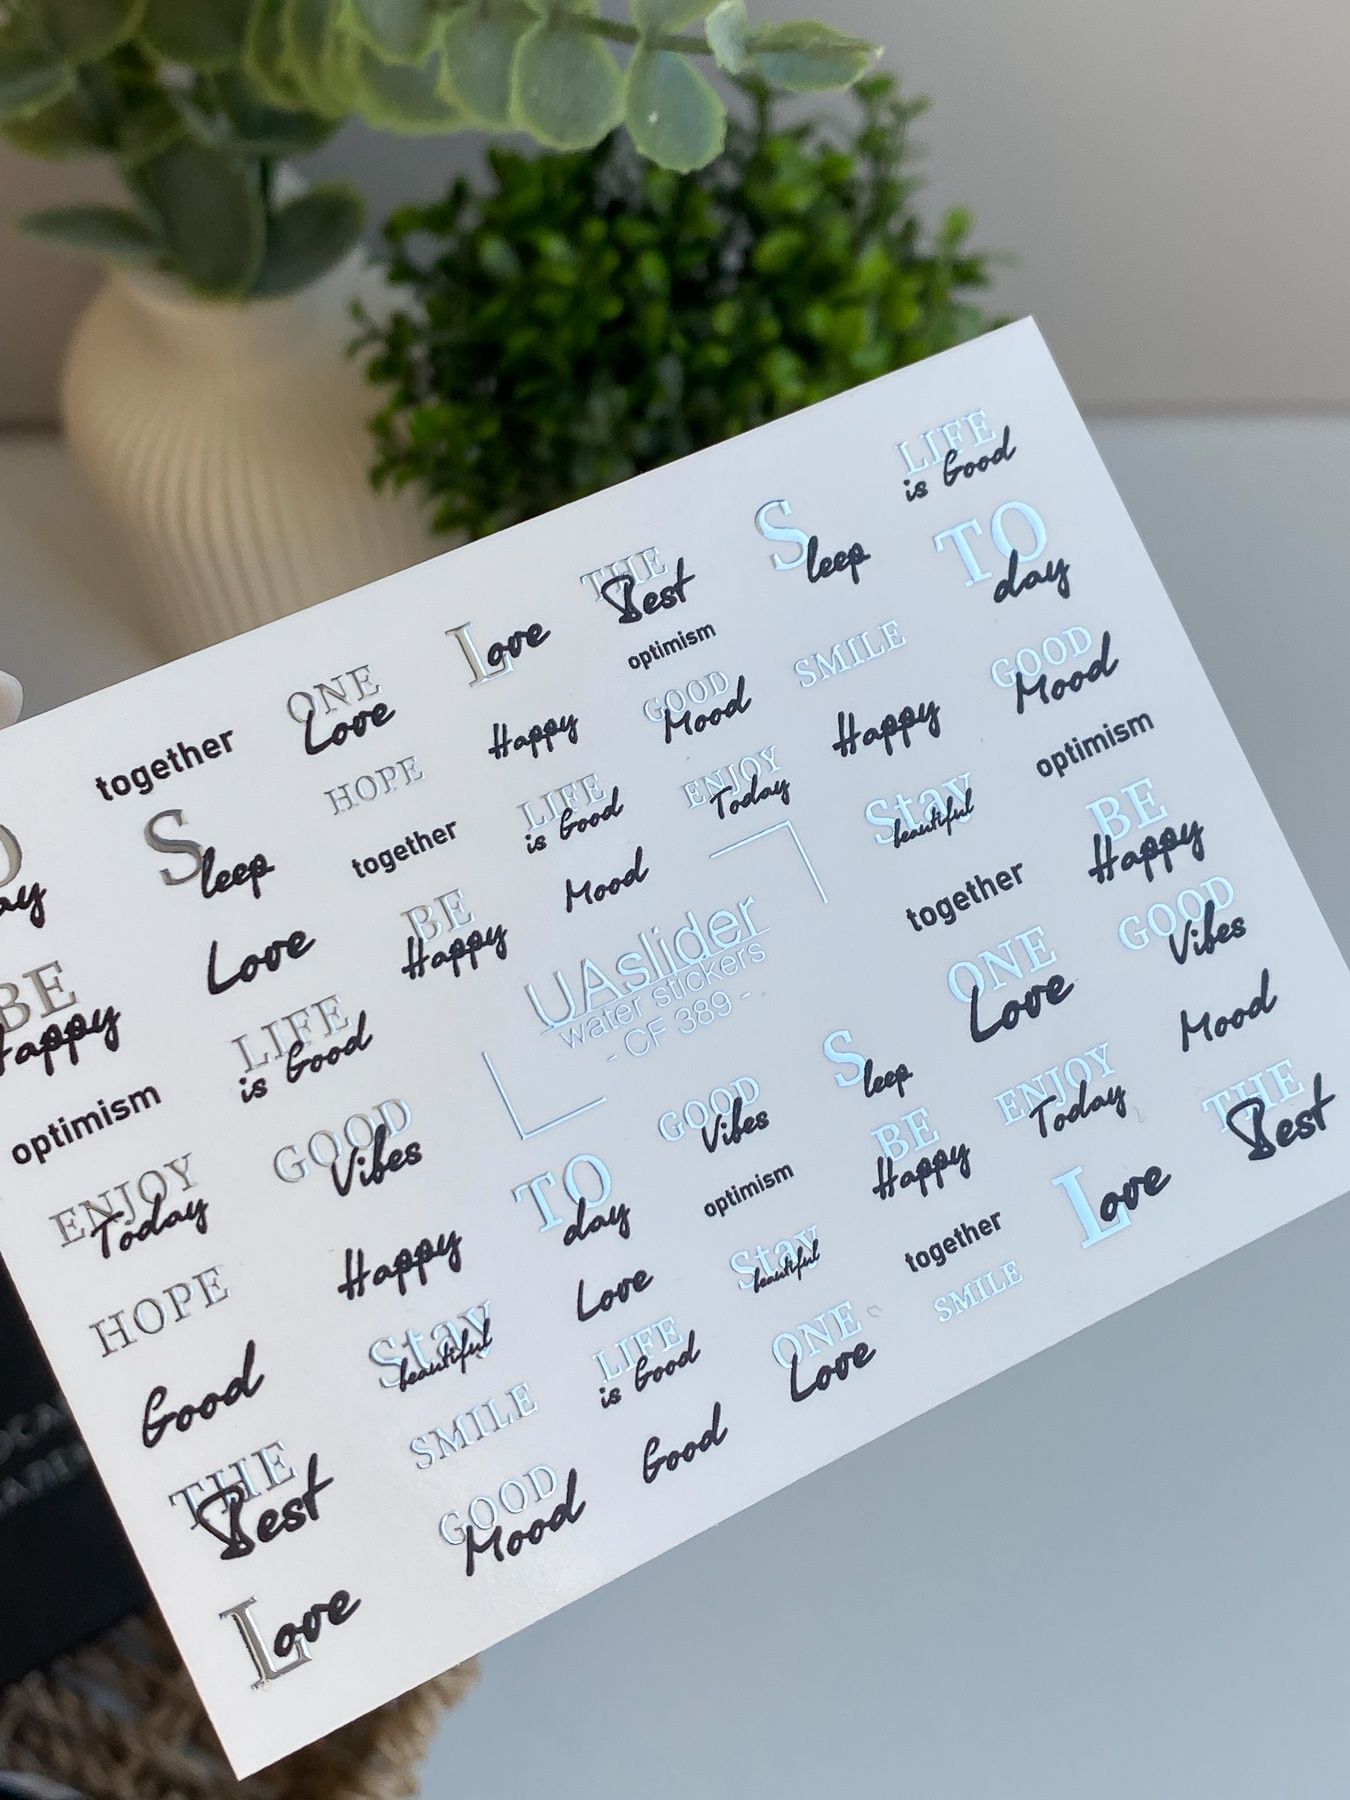 LIFE
is Good
THE
Best
Sleep
TO
day
ONE
Love
Love
optimism
SMILE
GOOD
Mood
together
HOPE
Happy
GOOD
Mood
Happy
optimism
Sleep
together
LIFE
is Good
ENJOY
Today
Stay
beautiful
BE
Happy
ay
Love
BE
Happy
Mood
together
GOOD
Vibes
BE
Happy
LIFE
is Good
UAslider
water stickers
- CF 389 -
ONE
Love
Mood
optimism
GOOD
Vibes
GOOD
Vibes
Sleep
ENJOY
Today
THE
Best
ENJOY
Today
Happy
TO
day
optimism
BE
Happy
Love
HOPE
Stay
beautiful
Love
Stay
beautiful
together
Good
SMILE
LIFE
is Good
ONE
Love
SMILE
THE
Best
GOOD
Mood
Good
Love